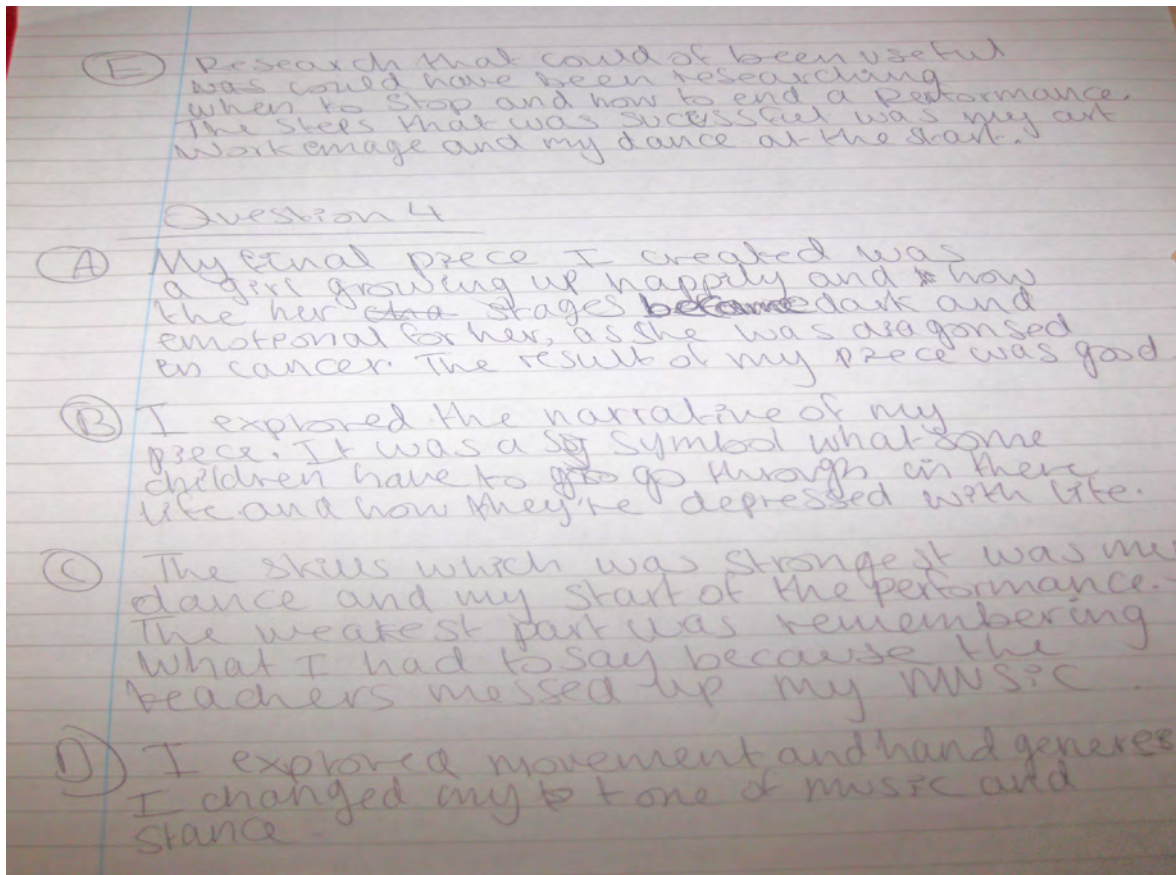 E Research that could of been useful
was could have been researching
when to stop and how to end a performance.
The steps that was sucessful was my art
work emage and my dance at the start.
Question 4
A My final piece I created was
a girl growing up happily and how
the her stages became dark and
emotional for her, as she was diagonsed
en cancer. The result of my piece was good
B I explored the narrative of my
piece. It was a symbol what some
children have to go through in there
life and how they're depressed with life.
C The skills which was strongest was my
dance and my start of the performance.
The weakest part was remembering
what I had to say because the
teachers messed up my music.
D I explored movement and hand generes
I changed my tone of music and
stance